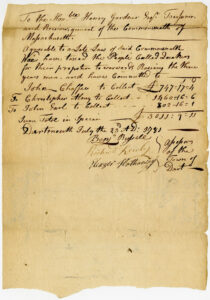 To the Hon.ble Henry Gardner Esq.r Treasurer
and Receiver General of the Commonwealth of
Massachusetts
Agreable to a Late Law of said Commonwealth
We have taxed the People Called Quakers
for their proportion towards Raising the three
years men and have Committed to
John Chaffee to Collect £ 747-17-4
To Christopher Almy to Collect 1460-16-6
To John Earl to Collect 802-16-1
Sum Total in Specie £ 3011-9-11
Dartmouth July the 23.d AD: 1781
Benj.a Russell
Richard Kirby
Assessors
of the
Town of
Dart